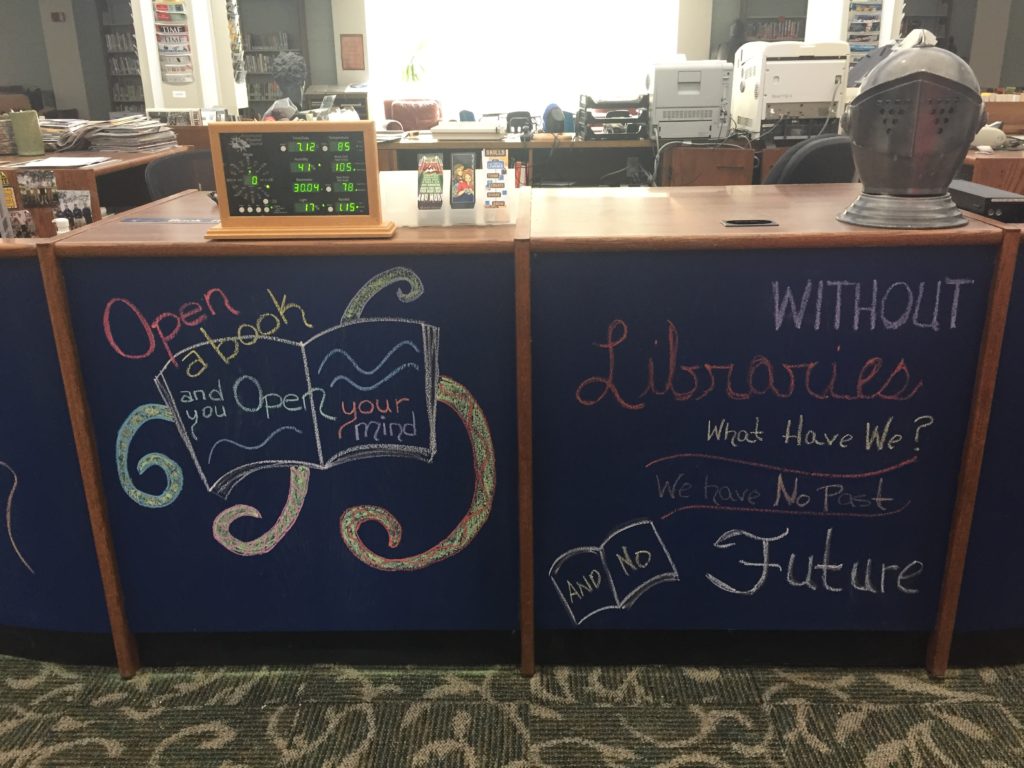 TIME
712 85
41 105
30.04 78
17 1.15
SKILLS
Open
a book
and
you Open your
mind
WITHOUT
Libraries
What Have We?
We have No Past
AND NO
Future